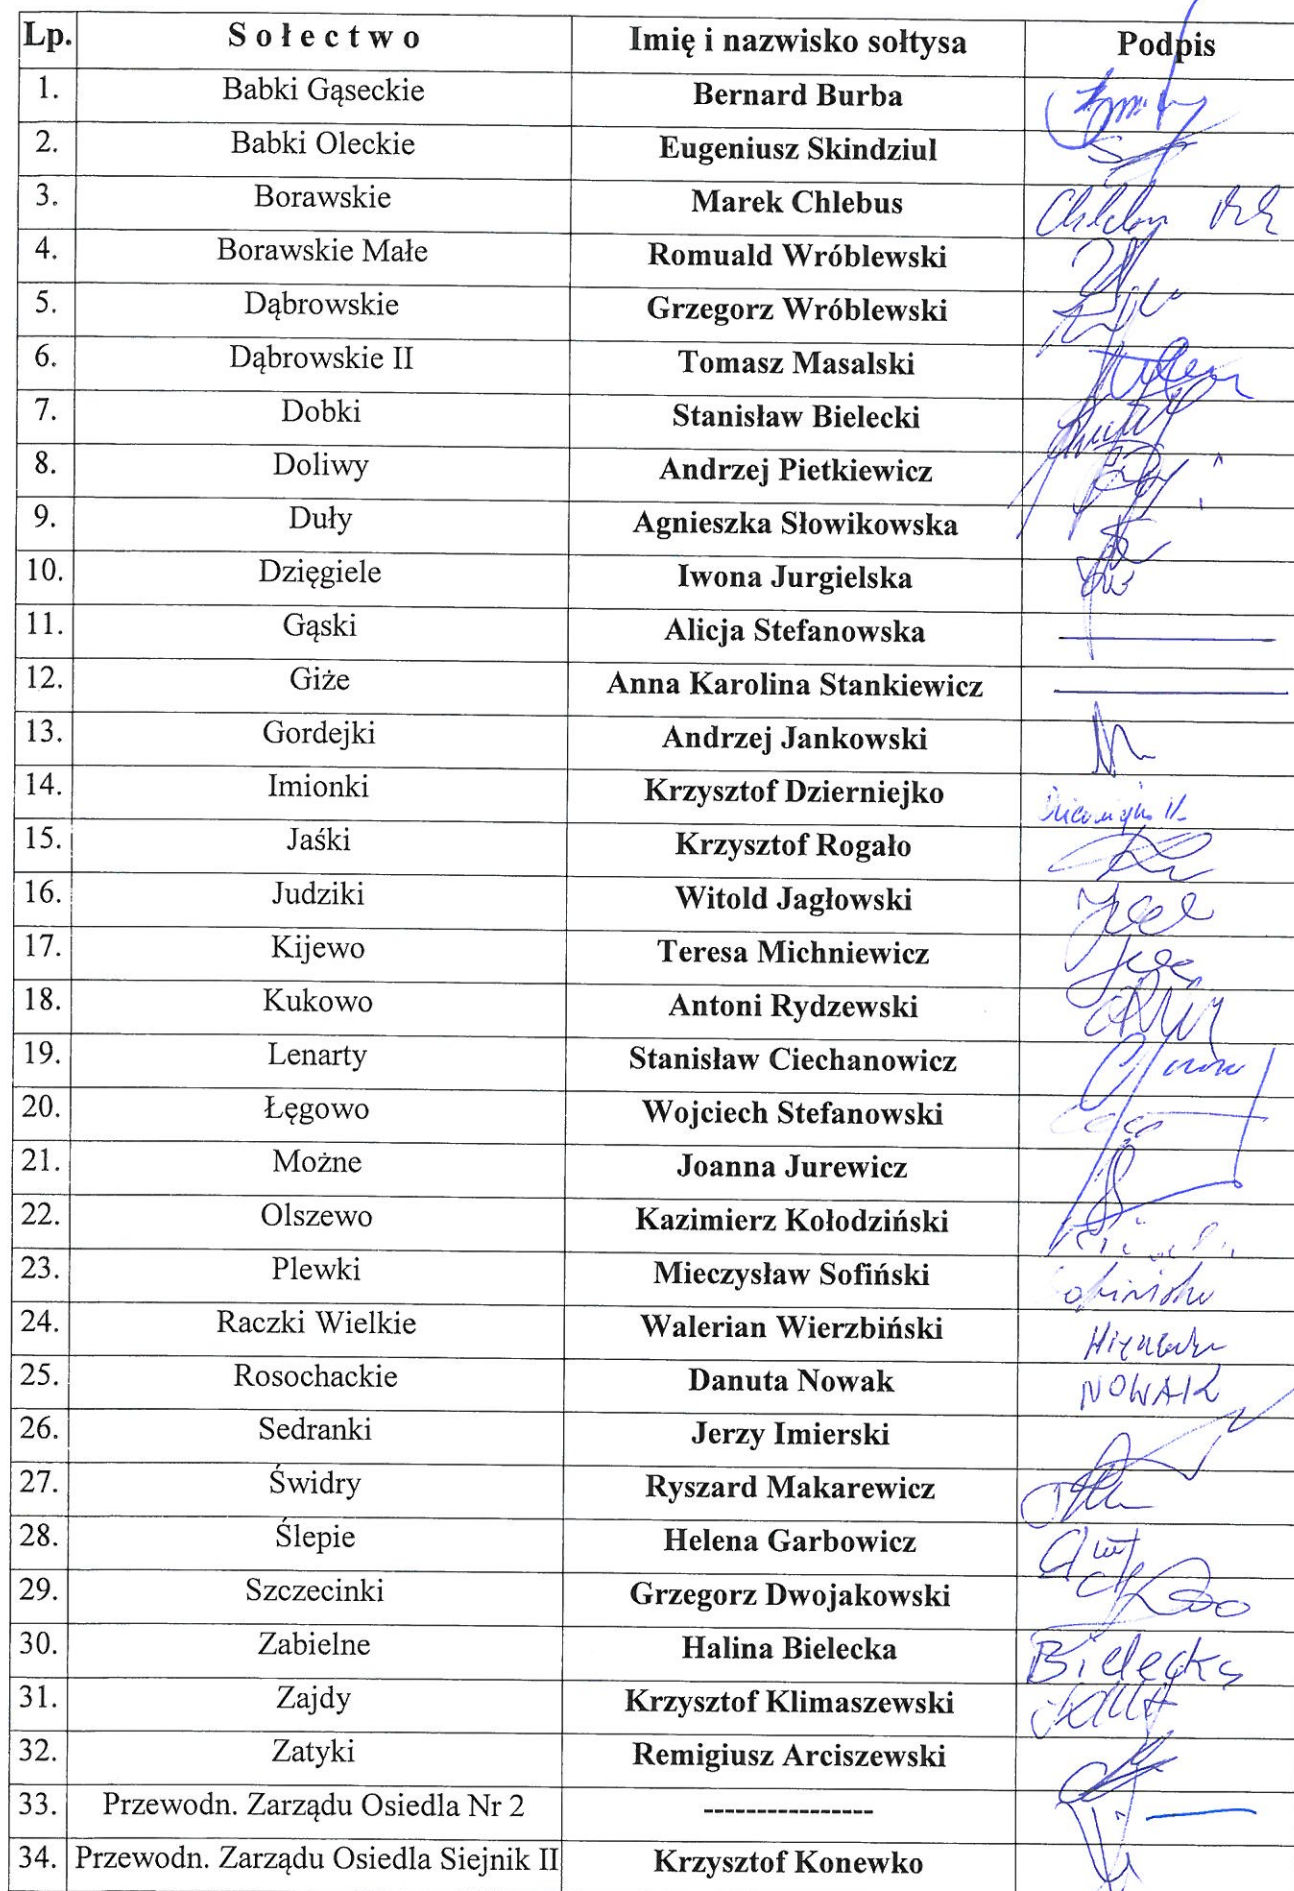 Lp. Sołectwo Imię i nazwisko sołtysa Podpis
1. Babki Gąseckie Bernard Burba
2. Babki Oleckie Eugeniusz Skindziul
3. Borawskie Marek Chlebus
4. Borawskie Małe Romuald Wróblewski
5. Dąbrowskie Grzegorz Wróblewski
6. Dąbrowskie II Tomasz Masalski
7. Dobki Stanisław Bielecki
8. Doliwy Andrzej Pietkiewicz
9. Duły Agnieszka Słowikowska
10. Dzięgiele Iwona Jurgielska
11. Gąski Alicja Stefanowska
12. Giże Anna Karolina Stankiewicz
13. Gordejki Andrzej Jankowski
14. Imionki Krzysztof Dzierniejko
15. Jaśki Krzysztof Rogało
16. Judziki Witold Jagłowski
17. Kijewo Teresa Michniewicz
18. Kukowo Antoni Rydzewski
19. Lenarty Stanisław Ciechanowicz
20. Łęgowo Wojciech Stefanowski
21. Możne Joanna Jurewicz
22. Olszewo Kazimierz Kołodziński
23. Plewki Mieczysław Sofiński
24. Raczki Wielkie Walerian Wierzbiński
25. Rosochackie Danuta Nowak NOWAK
26. Sedranki Jerzy Imierski
27. Świdry Ryszard Makarewicz
28. Ślepie Helena Garbowicz
29. Szczecinki Grzegorz Dwojakowski
30. Zabielne Halina Bielecka Bielecka
31. Zajdy Krzysztof Klimaszewski
32. Zatyki Remigiusz Arciszewski
33. Przewodn. Zarządu Osiedla Nr 2 ----------------
34. Przewodn. Zarządu Osiedla Siejnik II Krzysztof Konewko